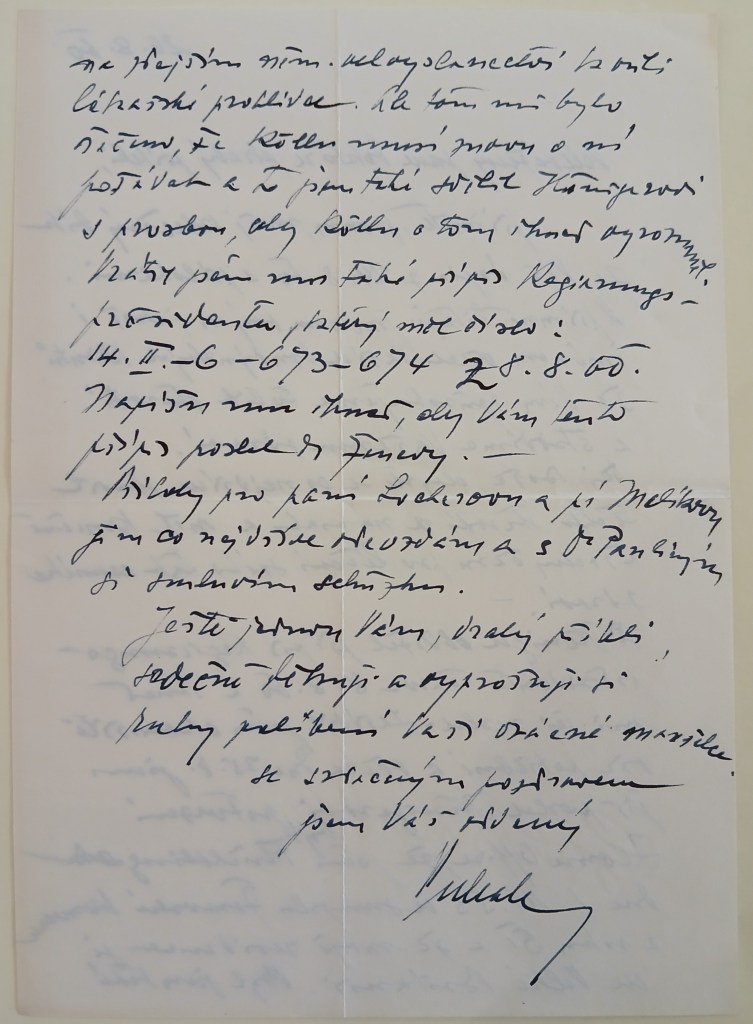 na zdejším něm. velvyslanectví kvůli
lékařské prohlídce. Ale tam mi bylo
řečeno, že Kölln musí znovu o ni
požádat a to jsem také sdělil
s prosbou, aby Kölln o tom ihned vyrozuměl.
Vrátit jsem mu také přípis Regierungs-
präsidenta, který měl číslo:
14. II. - 6 - 673 - 674 z 8. 8. 60.
Napište mu ihned, aby Vám tento
přípis poslal do Ženevy. —
Přílohy pro paní a pí Melíkovou
jim co nejdříve odevzdám a s Dr
si smluvím schůzku.
Ještě jednou Vám, drahý příteli,
srdečně děkuji a vyprošuji si
ruky políbení Vaší vzácné manželce.
se srdečným pozdravem
jsem Váš oddaný